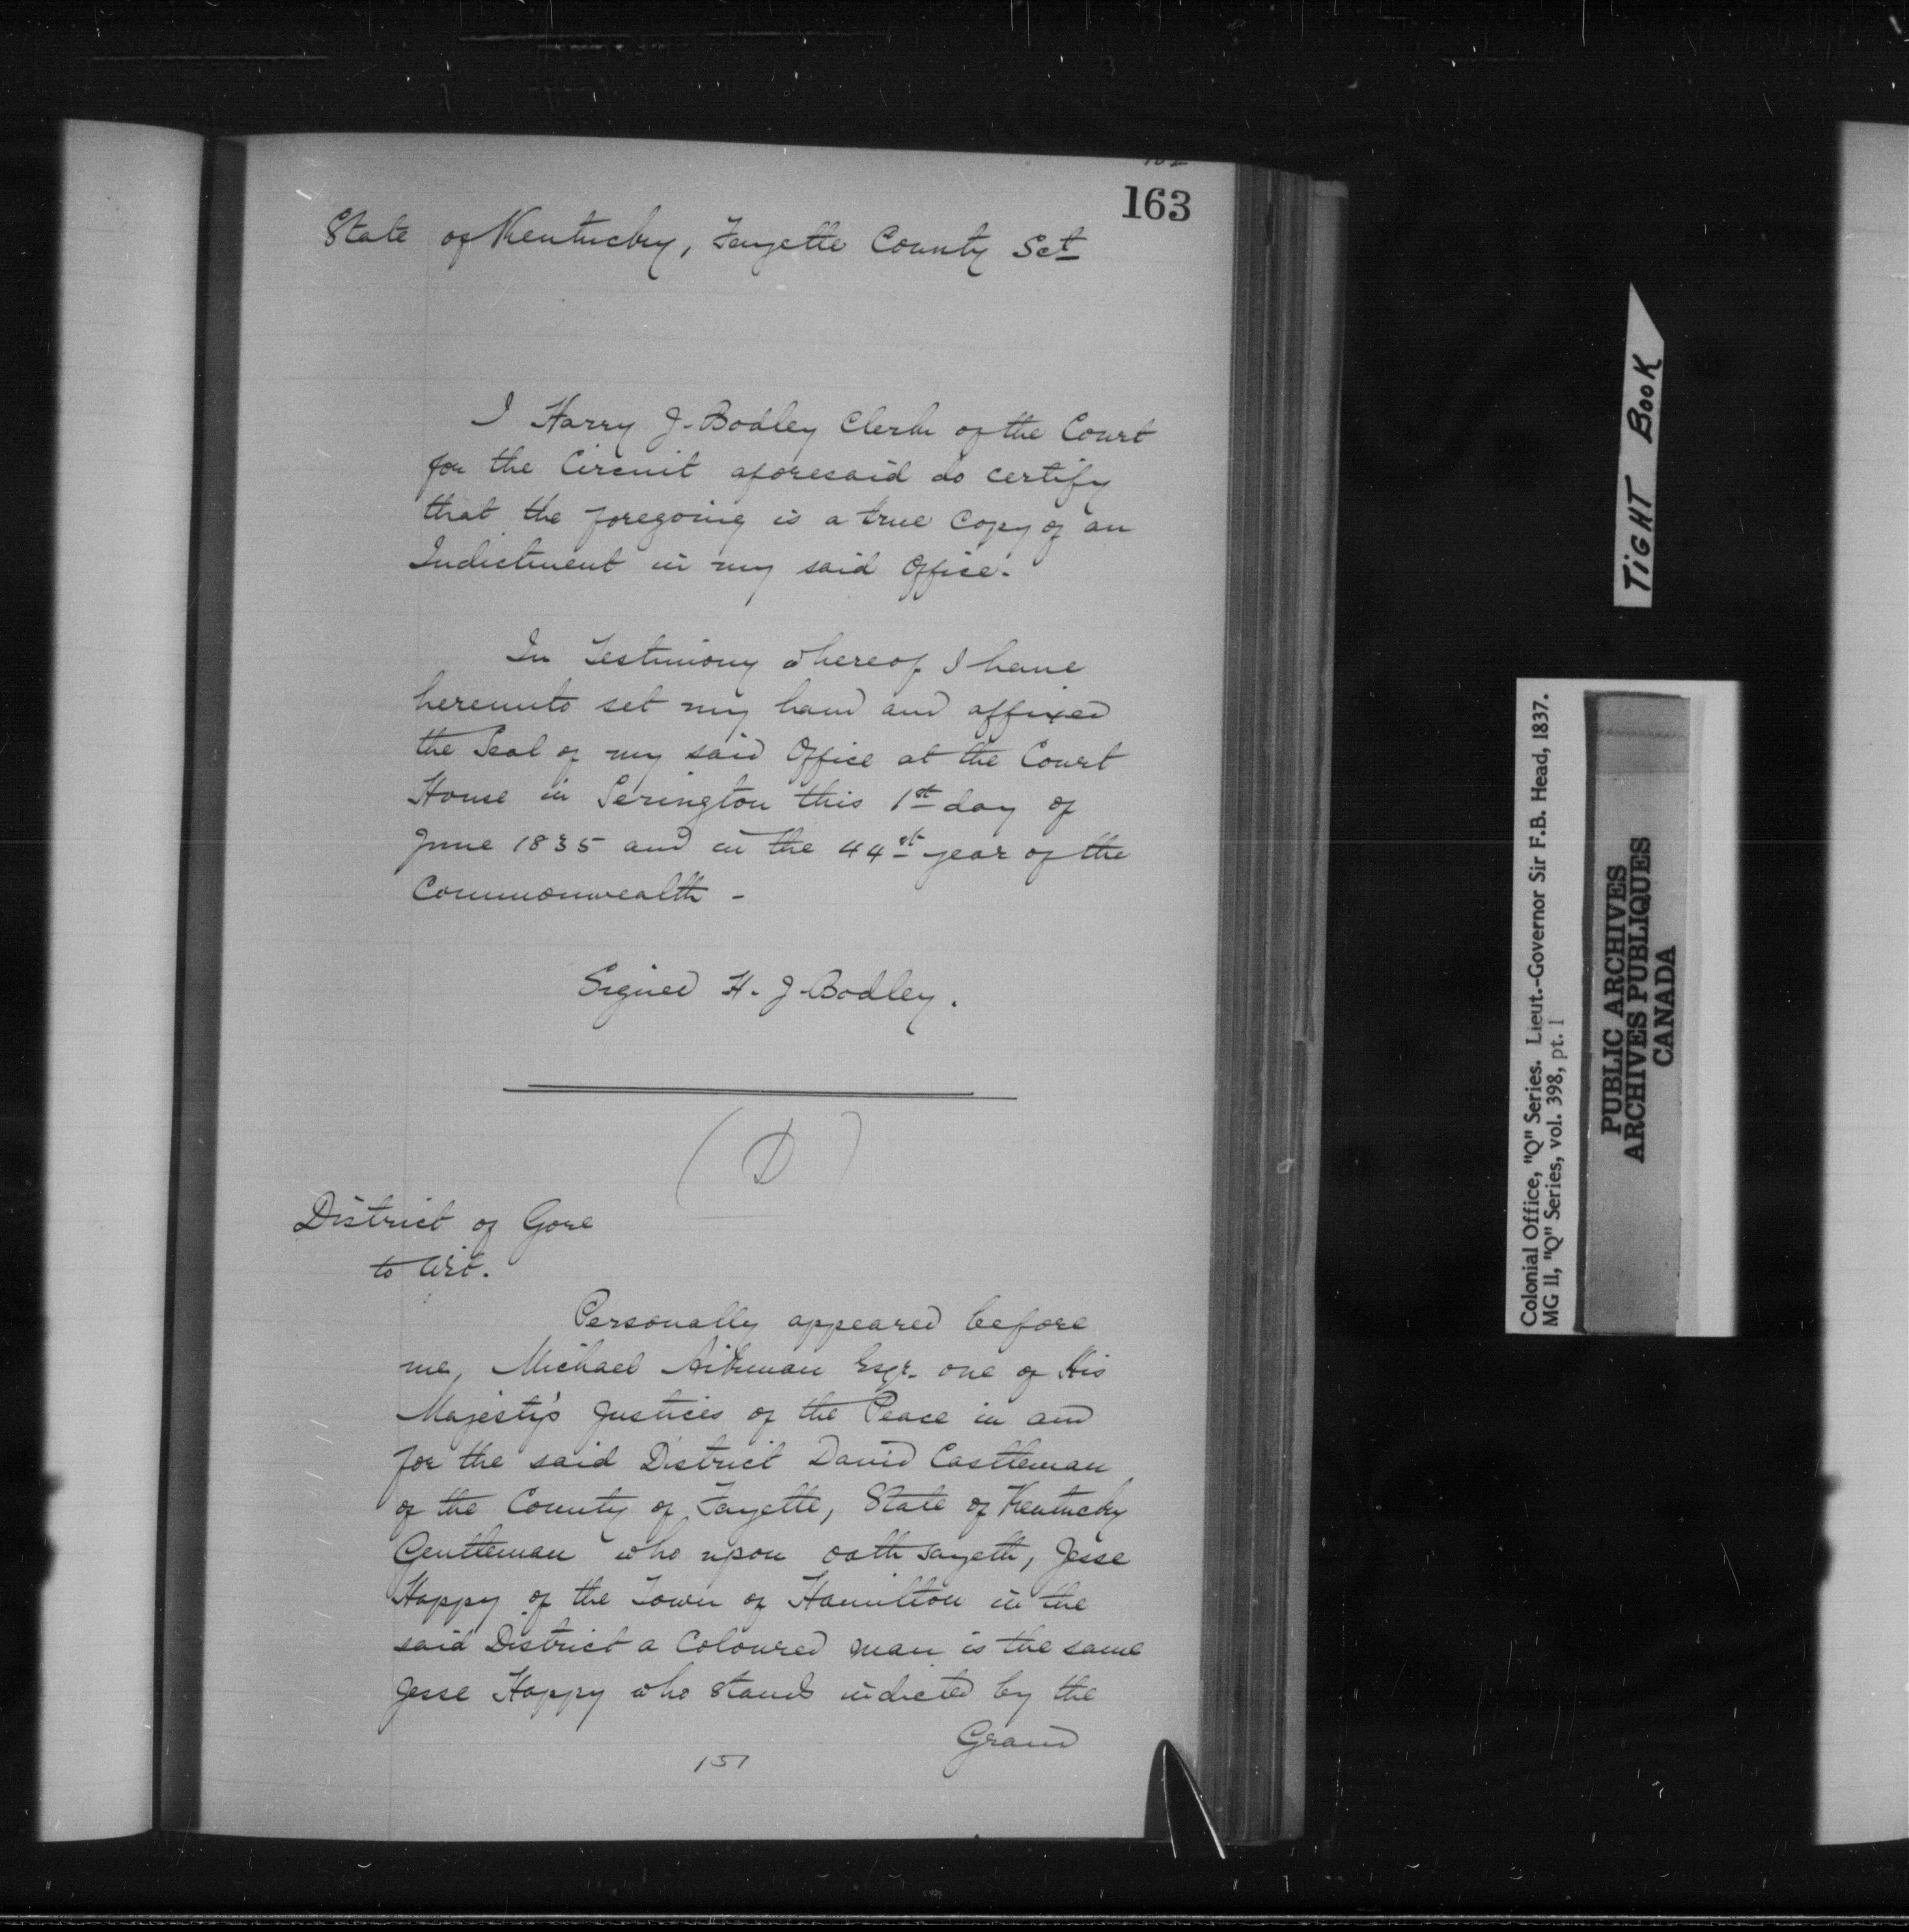 163
State of Kentucky, Fayette County Sct
I Harry J. Bodley Clerk of the Court
for the Circuit aforesaid do certify
that the foregoing is a true Copy of an
Indictment in my said Office.
In Testimony whereof I have
hereunto set my hand and affixed
the Seal of my said Office at the Court
House in Lexington this 1st day of
June 1835 and in the 44st year of the
Commonwealth -
Signed H. J. Bodley.
(D)
District of Gore
to wit.
Personally appeared before
me, Michael Aikman Esqr. one of His
Majesty's Justices of the Peace in and
for the said District David Castleman
of the County of Fayette, State of Kentucky
Gentleman who upon oath sayeth, Jesse
Happy of the Town of Hamilton in the
said District a Coloured man is the same
Jesse Happy who stands indicted by the
Grand
151
TIGHT BOOK
Colonial Office, "Q" Series. Lieut.-Governor Sir F.B. Head, 1837.
MG 11, "Q" Series, vol. 398, pt. 1
PUBLIC ARCHIVES
ARCHIVES PUBLIQUES
CANADA